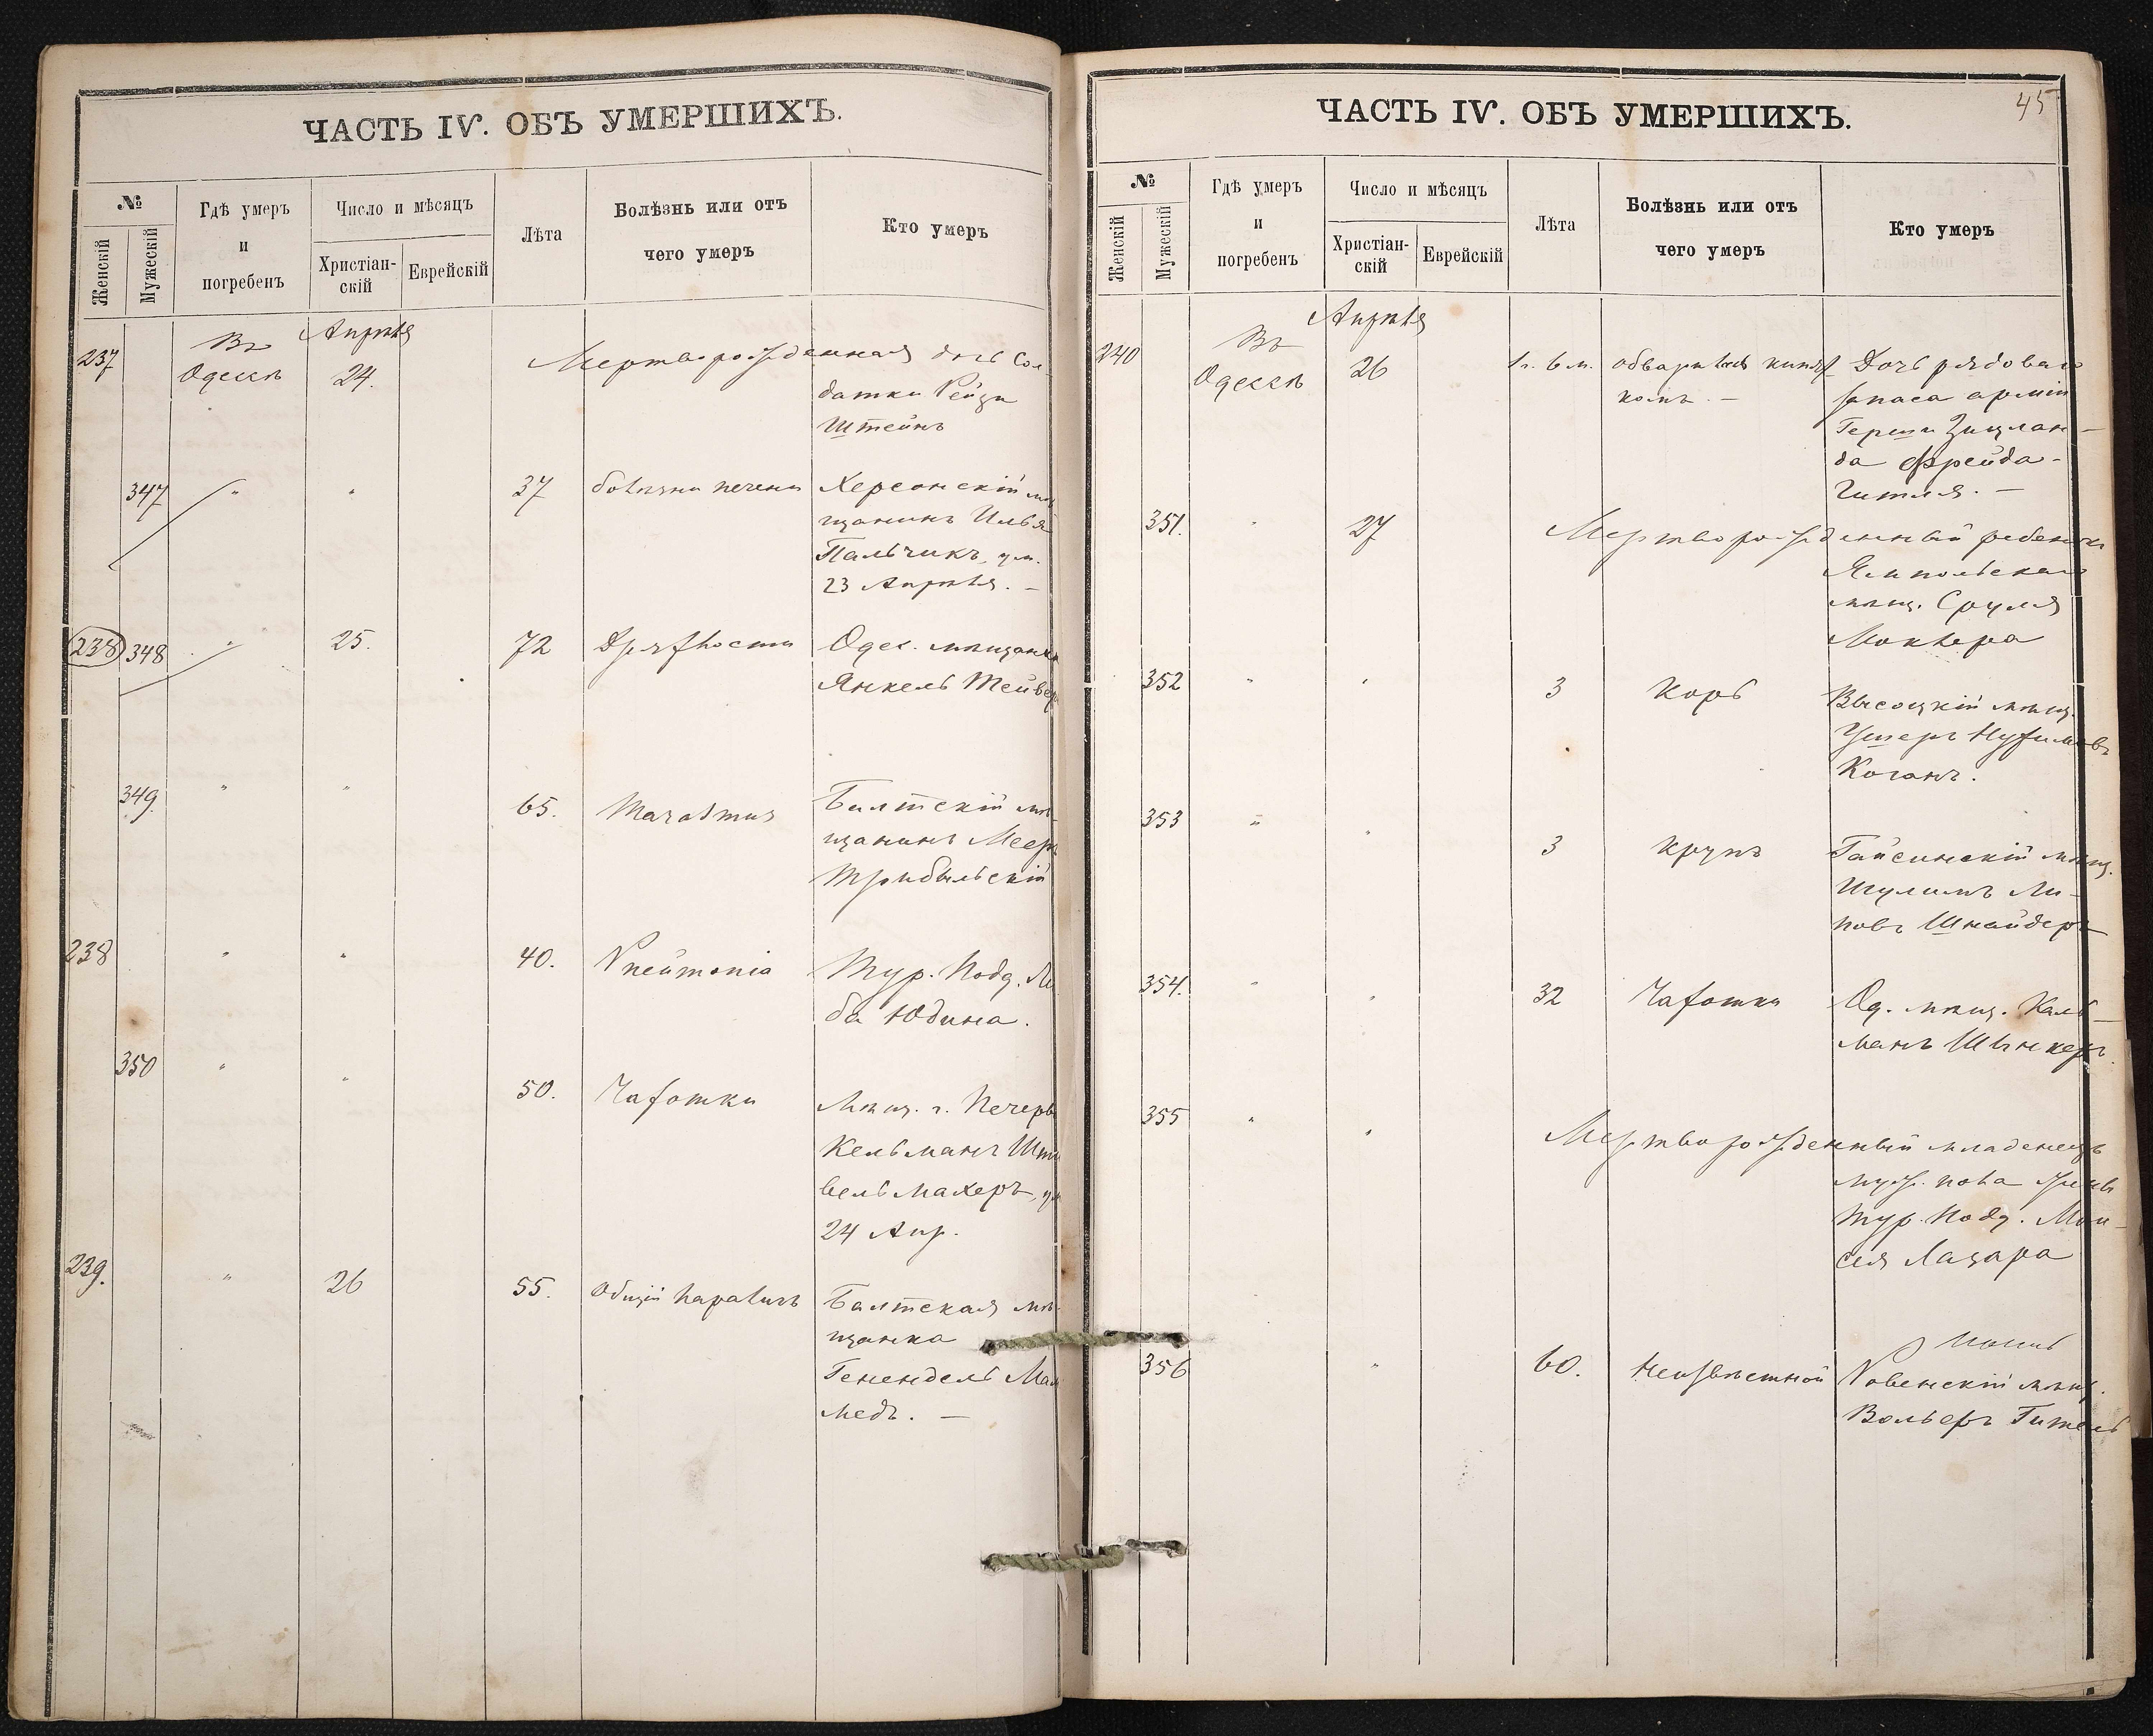 ЧАСТЬ IV. ОБЪ УМЕРШИХЪ.
№
Женскій
Мужескій
Гдѣ умеръ
и
погребенъ
Число и мѣсяцъ
Христіан-
скій
Еврейскій
Лѣта
Болѣзнь или отъ
чего умеръ
Кто умеръ
237
Въ
Одессѣ
Апрѣля
24.
Мертворожденная дочь Сол-
датки Рейзи
Штейнъ
347 " " 37 болѣзни печени Херсонскій мѣ
щанинъ Илья
Пальчикъ, ум.
23 Апрѣля. –
238 348 " 25. 72 Дряхлости Одес. мѣщанинъ
Янкель Тейвер
349. " " 65. Marasmus Балтскій мѣ-
щанинъ Мееръ
238 " " 40. Pneumonia Тур. Подд. Ли
ба Юдина.
350 " " 50. Чахотки Мѣщ. г.
Кельманъ Шти
вельмахеръ, ум
24 Апр.
239. " 26 55. Общій параличъ Балтская мѣ-
щанка
Генендель Мал
медъ. –
ЧАСТЬ IV. ОБЪ УМЕРШИХЪ.
45
№
Женскій
Мужескій
Гдѣ умеръ
и
погребенъ
Число и мѣсяцъ
Христіан-
скій
Еврейскій
Лѣта
Болѣзнь или отъ
чего умеръ
Кто умеръ
240
Въ
Одессѣ
Апрѣля
26
1 г. 6 м. обварилась кипят- Дочь рядоваго
комъ. – запаса арміи
Герша
да Фрейда-
Гитля. –
351. " 27 Мертворожденный ребенокъ
Ямпольскаго
мѣщ. Сруля
Моклера
352 " " 3 Корь Высоцкій мѣщ.
Ушеръ
Коганъ.
353 " " 3 Крупъ Гайсинскій мѣщ.
Шулимъ Ли-
повъ Шнайдеръ
354. " " 32 Чахотки Од. мѣщ. Каль-
манъ
355 " " Мертворожденный младенецъ
муж. пола
Тур. Подд. Мои-
сея Лазара
356 " 60. Неизвѣстной Ровенскій мѣщ.